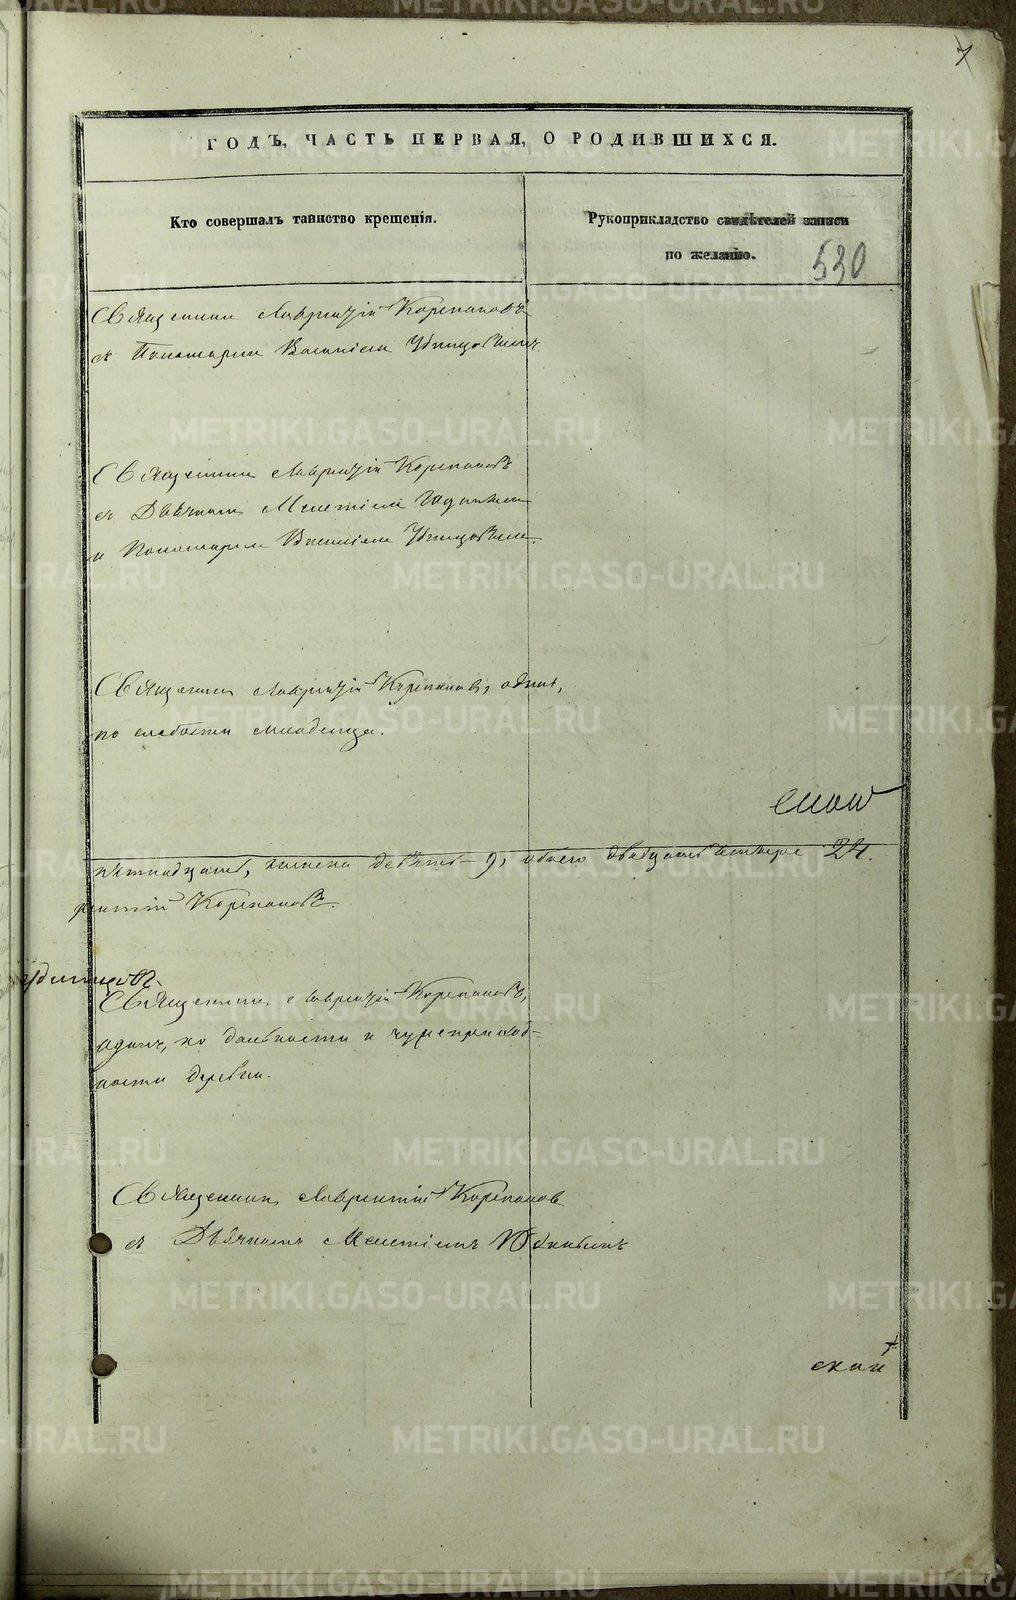 7
ГОДЪ, ЧАСТЬ ПЕРВАЯ, О РОДИВШИХСЯ.
Кто совершалъ таинство крещенія.
Рукоприкладство свидѣтелей записи
по желанію.
530
Священникъ Лаврентій Корепановъ
съ Пономаремъ Василіемъ
Священникъ Лаврентій Корепановъ
съ Дьячкомъ Мелетіемъ
и Пономаремъ Василіемъ
Священникъ Лаврентій Корепановъ, одинъ,
по слабости младенца.
пятнадцать, женска девять 9, обоего двадцать четыре 24.
рентій Корепановъ.
Священникъ Лаврентій Корепановъ,
одинъ, по дальности и
ности деревни.
Священникъ Лаврентій Корепановъ
съ Дьячкомъ Мелетіемъ
ской
METRIKI.GASO-URAL.RU